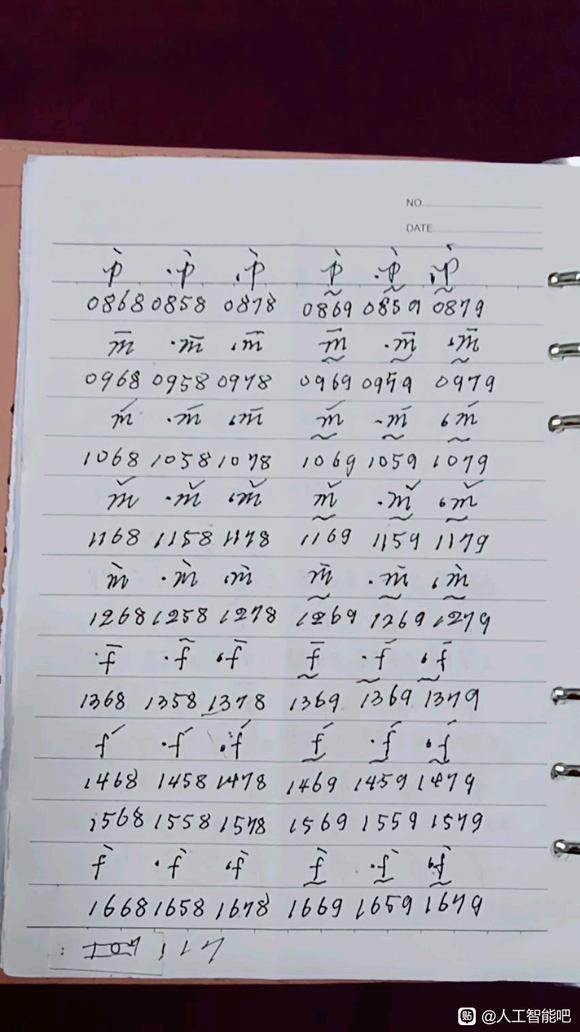 NO.
DATE
p̀ ·p̀ ,p̀ p̰̀ ·p̰̀ ,p̰̀
0868 0858 0878 0869 0859 0879
m̄ ·m̄ ,m̄ m̰̄ ·m̰̄ ,m̰̄
0968 0958 0978 0969 0959 0979
ḿ ·ḿ ,m̄ m̰̄ ·m̰̄ ,ḿ̰
1068 1058 1078 1069 1059 1079
m̌ ·m̌ ,m̌ m̰̌ ·m̰̌ ,m̰̌
1168 1158 1178 1169 1159 1179
m̀ ·m̀ ,m̀ m̰̀ ·m̰̀ ,m̰̀
1268 1258 1278 1269 1269 1279
·f̄ ·f̄ ,f̄ f̰̄ ·f̰̄ ,f̰̄
1368 1358 1378 1369 1369 1379
f́ ·f́ ,f́ f̰́ ·f̰́ ,f̰́
1468 1458 1478 1469 1459 1479
1568 1558 1578 1569 1559 1579
f̀ ·f̀ ,f̀ f̰̀ ·f̰̀ ,f̰̀
1668 1658 1678 1669 1659 1679
贴 @人工智能吧